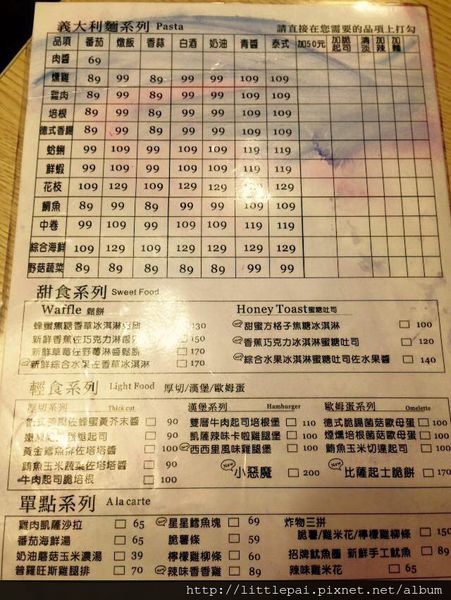 義大利麵系列 Pasta 請直接在您需要的品項上打勾
品項 番茄 燉飯 香蒜 白酒 奶油 青醬 泰式 加50元 加脆起司 清淡 加辣 加麵
肉醬 69
燻雞 89 99 89 99 99 109 109
雞肉 89 99 89 99 99 109 109
培根 89 99 89 99 89 109 109
德式香腸 89 99 89 99 89 109 109
蛤蜊 99 109 99 109 99 119 119
鮮蝦 99 109 99 109 99 119 119
花枝 109 129 109 129 109 129 129
鯛魚 89 99 89 99 89 109 109
中卷 99 109 99 109 99 119 119
綜合海鮮 109 129 109 129 109 129 129
野菇蔬菜 89 89 89 89 89 89 89
甜食系列 Sweet Food
Waffle 鬆餅 Honey Toast 蜜糖吐司
蜂蜜焦糖香草冰淇淋 130
新鮮香蕉佐巧克力冰淇淋 150
新鮮草莓佐野莓淋醬鬆餅 170
新鮮綜合水果佐香草冰淇淋 170
甜蜜方格子焦糖冰淇淋 100
香蕉巧克力冰淇淋蜜糖吐司 120
綜合水果冰淇淋蜜糖吐司佐水果醬 140
輕食系列 Light Food 厚切/漢堡/歐姆蛋
厚切系列 Thick cut 漢堡系列 Hamburger 歐姆蛋系列 Omelette
佐蜂蜜黃芥末醬 90 雙層牛肉起司培根堡 110 德式脆腸菌菇歐母蛋 100
起司 90 凱薩辣味卡啦雞腿堡 100 煙燻培根菌菇歐母蛋 100
黃金鱈魚排佐塔塔醬 90 西西里風味雞腿堡 100 鮪魚玉米切達起司 100
鮪魚玉米蔬菜佐塔塔醬 100
牛肉起司脆培根 100 小惡魔 200 比薩起士脆餅 170
單點系列 A la carte
雞肉凱薩沙拉 65 星星鱈魚塊 69 炸物三拼
番茄海鮮湯 39 脆薯條 59 脆薯/雞米花/檸檬雞柳條 150
奶油蘑菇玉米濃湯 39 檸檬雞柳條 60 招牌魷魚圈 新鮮手工魷魚 89
普羅旺斯雞腿排 70 辣味香香雞 89 辣味雞米花 65
http://littlepai.pixnet.net/album